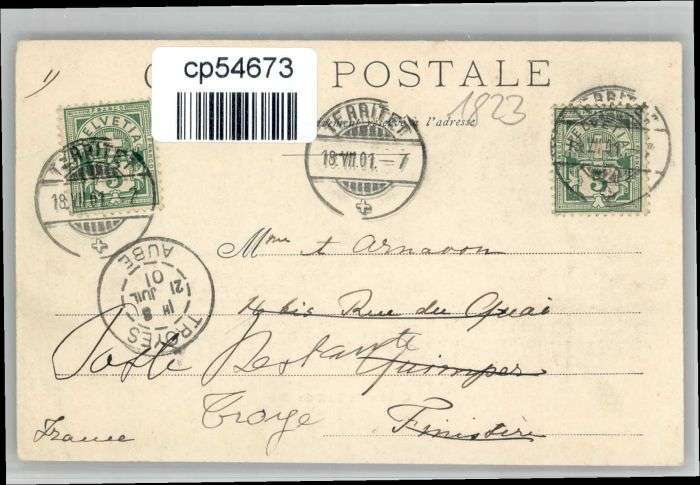 cp54673
C POSTALE
1823
l'adresse
FRANCO
HELVETIA
5
TERRITET
18.VII.01.–7
TERRITET
18.VII.01.–7
HELVETIA
5
TERRITET
Mme t Arnavon
4 bis Rue du Quai
TROYES
AUBE
8
JUIL
01
21
Poste Restante
Quimper
Troye Finistère
France